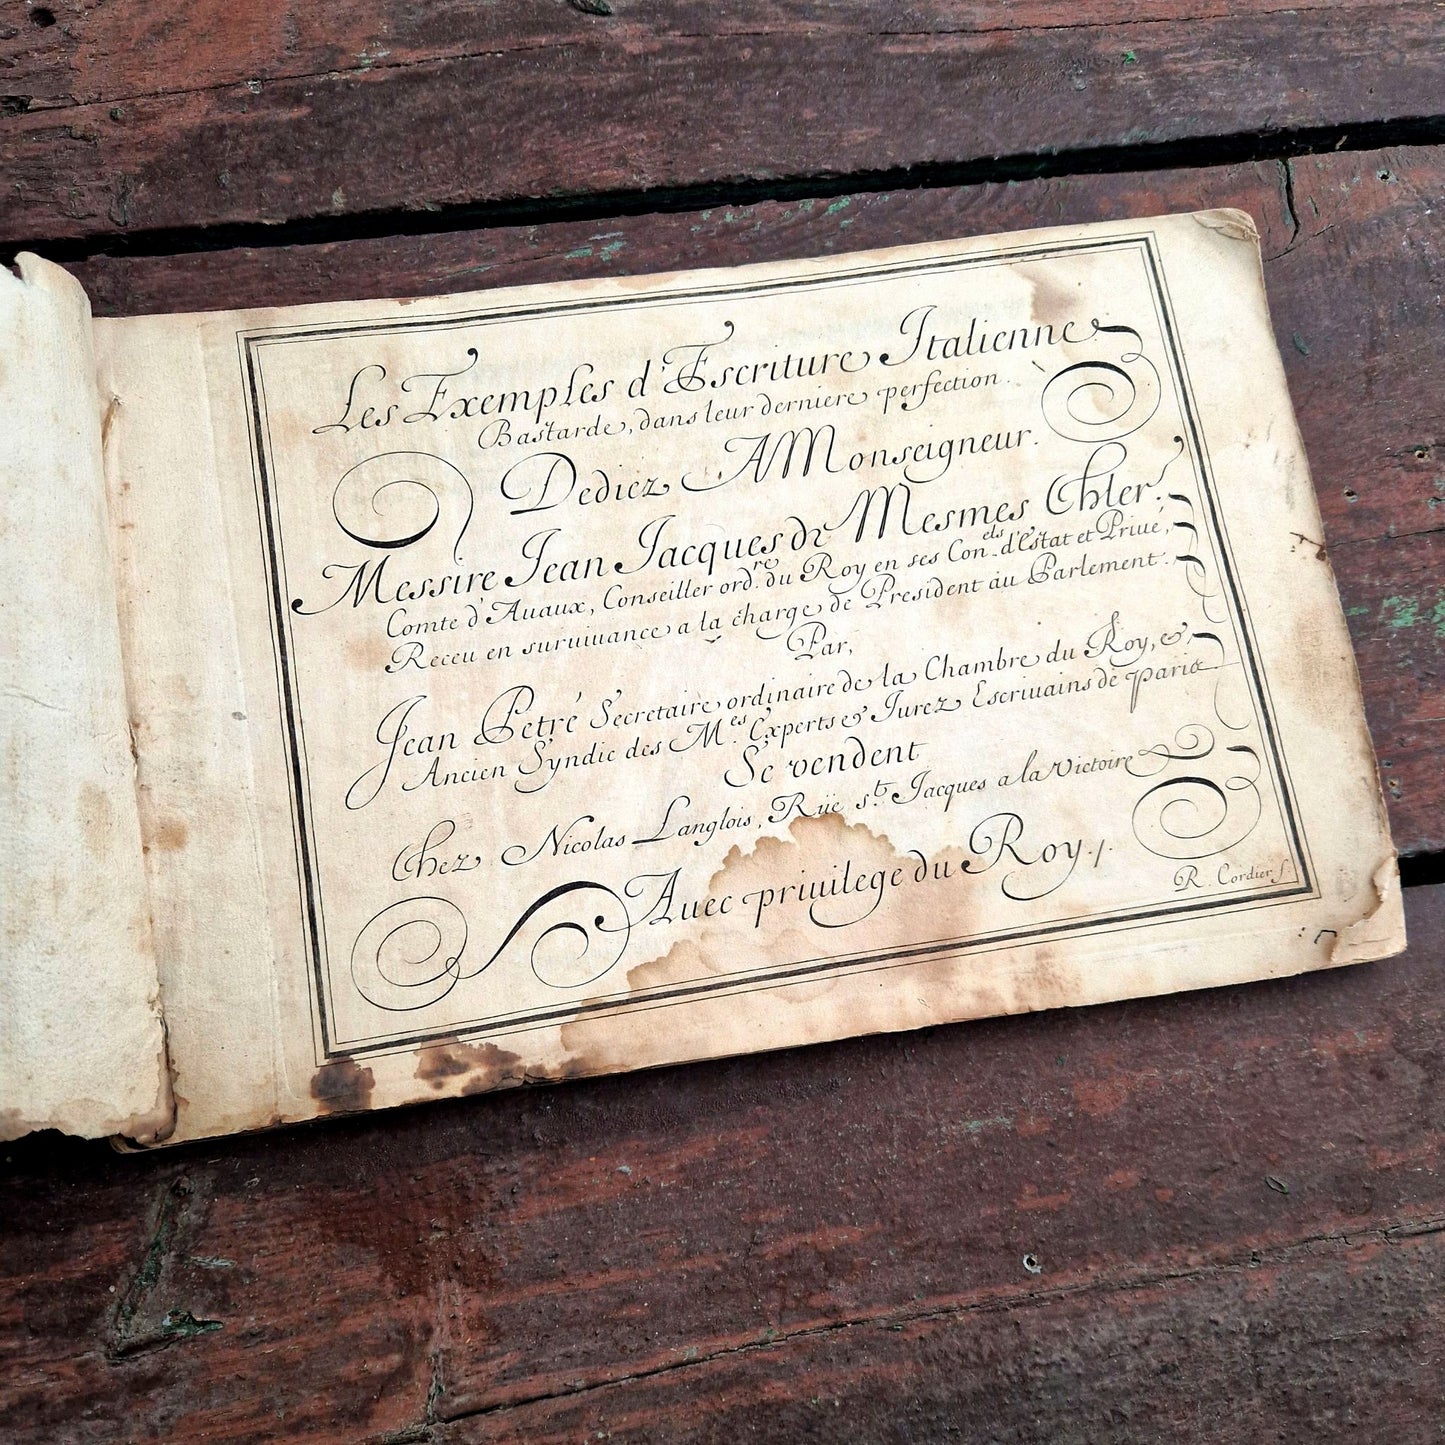 Les Exemples d'Escriture Italienne
Bastarde, dans leur derniere perfection.
Dediez A Monseigneur.
Messire Jean Jacques de Mesmes Chler.
Comte d'Auaux, Conseiller ord.re du Roy en ses Con.els d'Estat et Priué,
Receu en suruiuance a la charge de President au Parlement.
Par,
Jean Petré Secretaire ordinaire de la Chambre du Roy, &
Ancien Syndic des M.es Experts & Jurez Escriuains de Paris
Se vendent
Chez Nicolas Langlois, Rüe s.t Jacques a la victoire
Auec priuilege du Roy.
R. Cordier s.